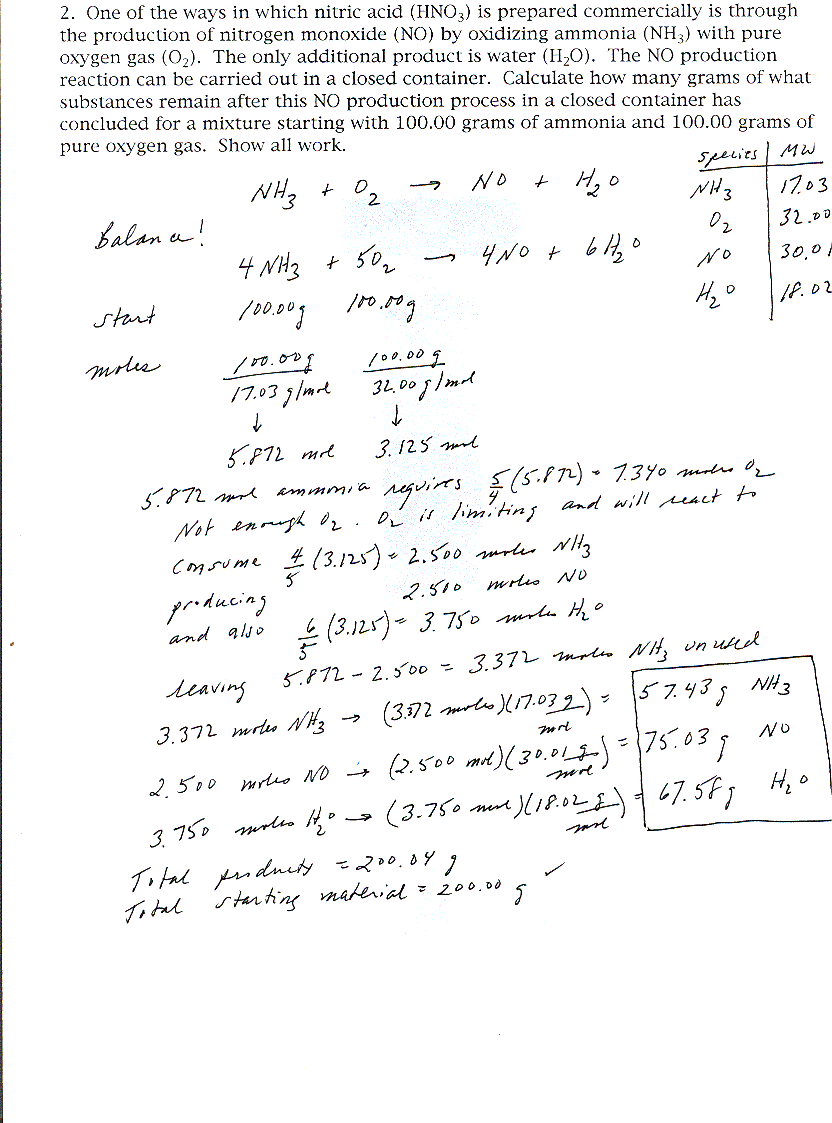 2. One of the ways in which nitric acid (HNO₃) is prepared commercially is through
the production of nitrogen monoxide (NO) by oxidizing ammonia (NH₃) with pure
oxygen gas (O₂). The only additional product is water (H₂O). The NO production
reaction can be carried out in a closed container. Calculate how many grams of what
substances remain after this NO production process in a closed container has
concluded for a mixture starting with 100.00 grams of ammonia and 100.00 grams of
pure oxygen gas. Show all work.
species | MW
NH₃ | 17.03
O₂ | 32.00
NO | 30.01
H₂O | 18.02
NH₃ + O₂ → NO + H₂O
Balance!
4 NH₃ + 5O₂ → 4NO + 6H₂O
start 100.00g 100.00g
moles 100.00g / 17.03 g/mol 100.00 g / 32.00 g/mol
↓ ↓
5.872 mol 3.125 mol
5.872 mol ammonia requires 5/4 (5.872) = 7.340 moles O₂
Not enough O₂. O₂ is limiting and will react to
consume 4/5 (3.125) = 2.500 moles NH₃
producing 2.500 moles NO
and also 6/5 (3.125) = 3.750 moles H₂O
leaving 5.872 - 2.500 = 3.372 moles NH₃ unused
3.372 moles NH₃ → (3.372 moles)(17.03 g/mol) = 57.43 g NH₃
2.500 moles NO → (2.500 mol)(30.01 g/mol) = 75.03 g NO
3.750 moles H₂O → (3.750 mol)(18.02 g/mol) = 67.58 g H₂O
Total products = 200.04 g
Total starting material = 200.00 g ✓